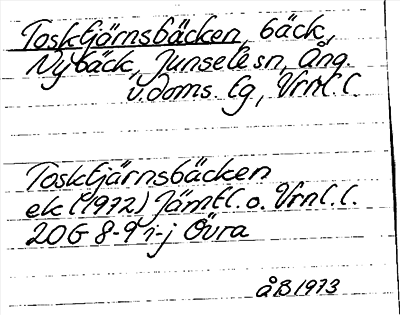 Tosktjärnsbäcken, bäck,
Nybäck, Junsele sn, Ång.
v.doms. lg, Vrnl. l.
Tosktjärnsbäcken
ek (1972) Jämtl. o. Vrnl. l.
20G 8-9 i-j Övra
ÅB 1973